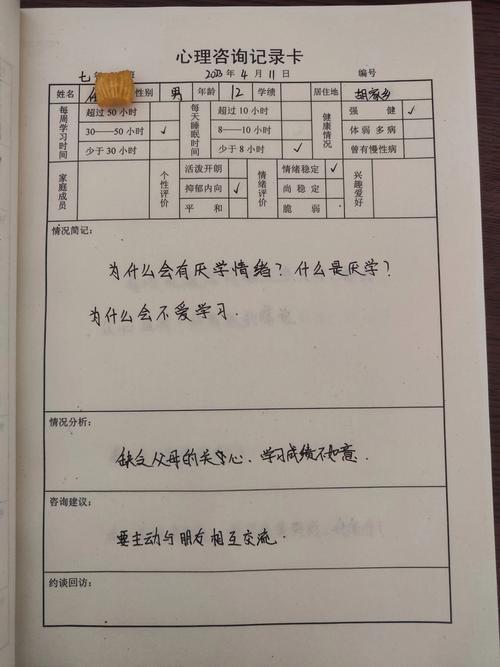 心理咨询记录卡
七年 班 2023年4月11日 编号
姓名 性别 男 年龄 12 学绩 居住地 胡家乡
每周学习时间 超过50小时 每天睡眠时间 超过10小时 健康情况 强健 ✓
30—50小时 ✓ 8—10小时 体弱多病
少于30小时 少于8小时 ✓ 曾有慢性病
家庭成员 个性评价 活泼开朗 情绪评价 情绪稳定 ✓ 兴趣爱好
抑郁内向 ✓ 尚稳定
平和 脆弱
情况简记:
为什么会有厌学情绪?什么是厌学?
为什么会不爱学习.
情况分析:
缺乏父母的关心、学习成绩不如意.
咨询建议:
要主动与朋友相互交流.
约谈回访: